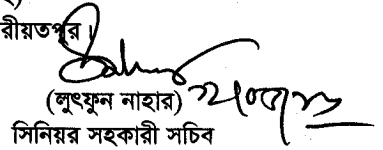 রীয়তপুর।
(লুৎফুন নাহার)
সিনিয়র সহকারী সচিব